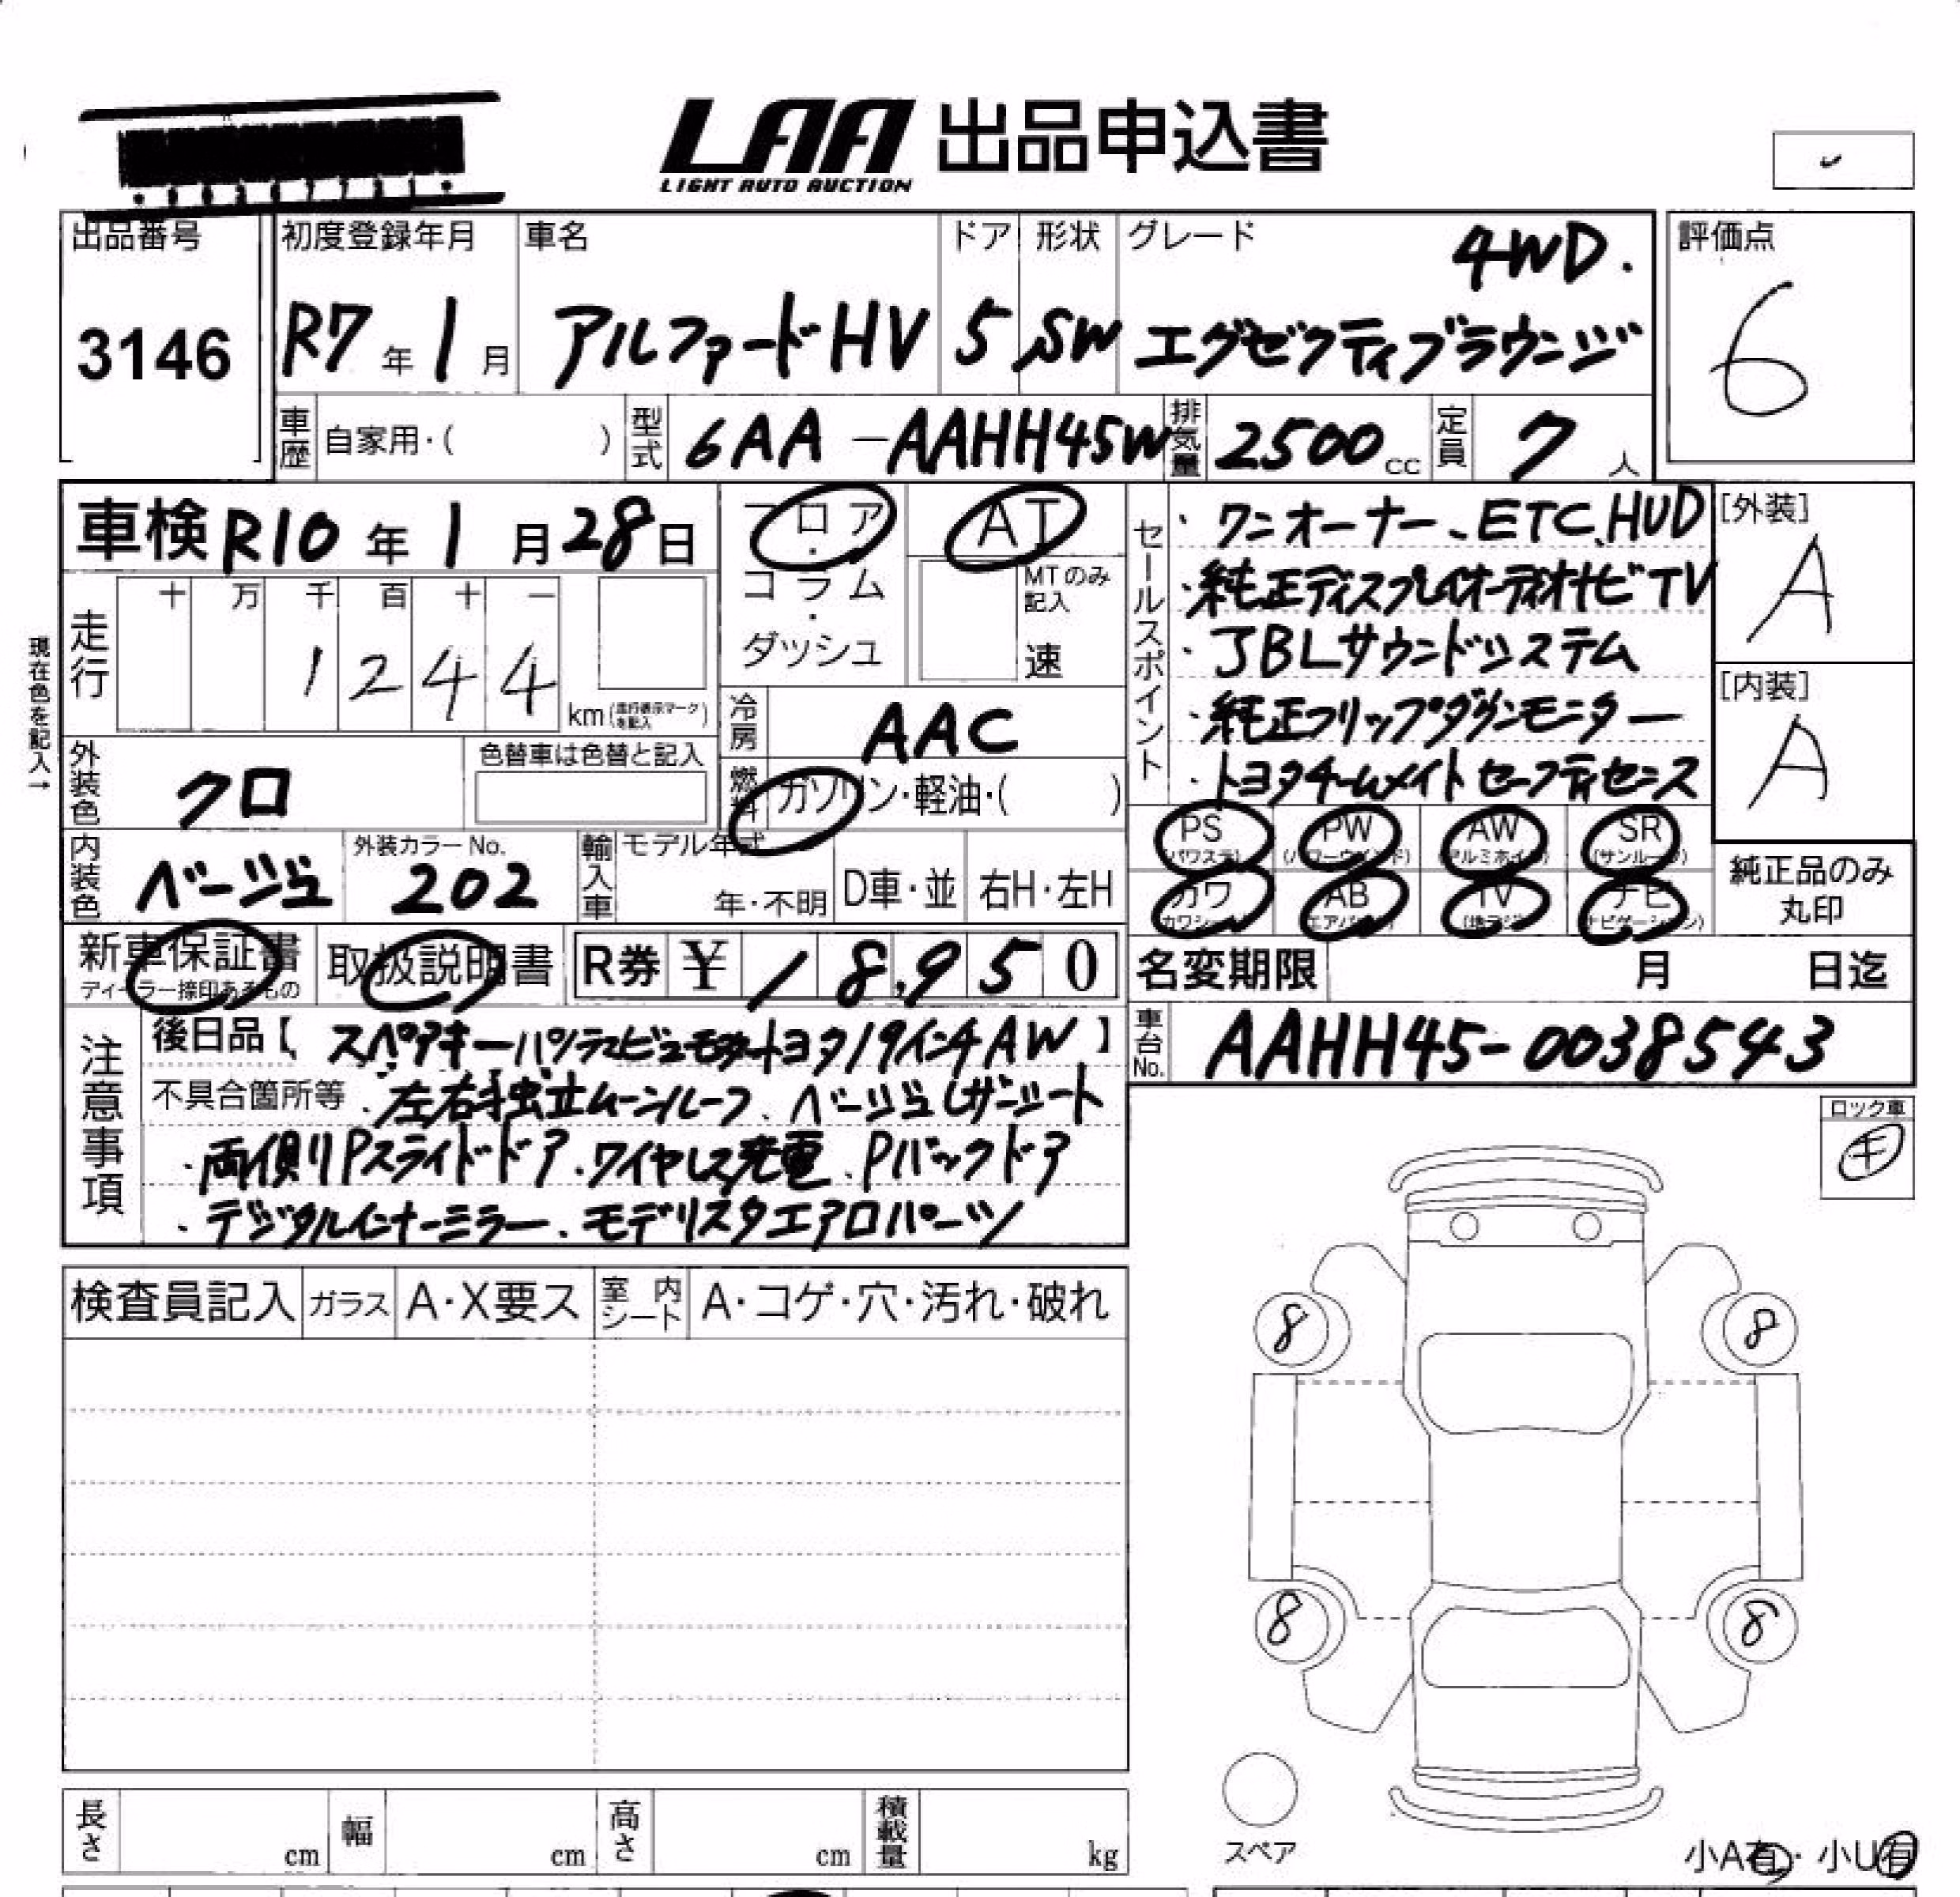 LAA 出品申込書
LIGHT AUTO AUCTION
出品番号
3146
初度登録年月
R7年1月
車名
アルファードHV
ドア
5
形状
SW
グレード
4WD.
エグゼクティブラウンジ
評価点
6
車歴 自家用・( )
型式 6AA-AAHH45W
排気量 2500cc
定員 7人
車検 R10年1月28日
フロア・コラム・ダッシュ
AT
MTのみ記入
速
走行 十 万 千 百 十 一
1244
km(走行表示マークを記入)
現在色を記入→
冷房 AAC
燃料 ガソリン・軽油・( )
外装色 クロ
色替車は色替と記入
内装色 ベージュ
外装カラーNo.
202
輸入車 モデル年式
年・不明 D車・並 右H・左H
セールスポイント
・ワンオーナー、ETC、HUD
・純正ディスプレイオーディオナビTV
・JBLサウンドシステム
・純正フリップダウンモニター
・トヨタチームメイト セーフティセンス
[外装]
A
[内装]
A
PS (パワステ)
PW (パワーウインド)
AW (アルミホイル)
SR (サンルーフ)
カワ (カワシート)
AB (エアバック)
TV (地デジ)
ナビ (ナビゲーション)
純正品のみ丸印
新車保証書
ディーラー捺印あるもの
取扱説明書
R券 ¥18,950
名変期限 月 日迄
車台No. AAHH45-0038543
注意事項
後日品【スペアキー パノラマビューモニター トヨタ19インチAW】
不具合箇所等 ・左右独立ムーンルーフ、ベージュレザーシート
・両側Pスライドドア、ワイヤレス充電、Pバックドア
・デジタルインナーミラー、モデリスタエアロパーツ
ロック車
キ
検査員記入 ガラス A・X要ス 室内シート A・コゲ・穴・汚れ・破れ
8
8
8
8
スペア
小A有・小U有
長さ cm 幅 cm 高さ cm 積載量 kg